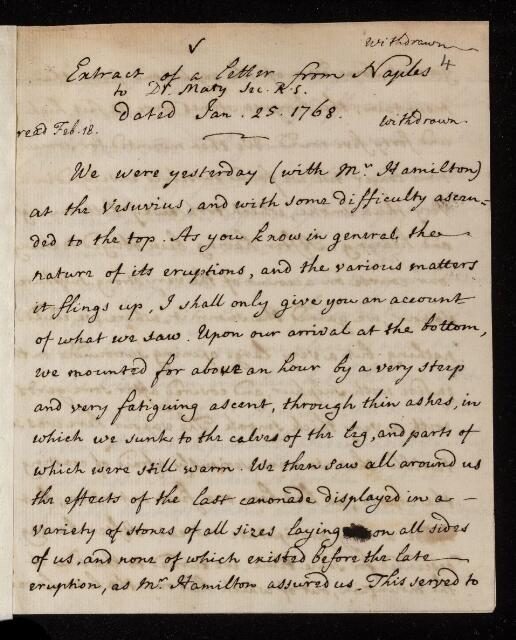 Withdrawn
4
Extract of a letter from Naples
to Dr. Maty Sec. R.S.
dated Jan. 25. 1768.
Withdrawn
read Feb. 18.
We were yesterday (with Mr Hamilton)
at the Vesuvius, and with some difficulty ascen=
ded to the top. As you know in general the
nature of its eruptions, and the various matters
it flings up, I shall only give you an account
of what we saw. Upon our arrival at the bottom,
we mounted for about an hour by a very steep
and very fatiguing ascent, through thin ashes, in
which we sunk to the calves of the leg, and parts of
which were still warm. We then saw all around us
the effects of the last canonade displayed in a
variety of stones of all sizes laying on all sides
of us, and none of which existed before the late
eruption, as Mr. Hamilton assured us. This served to